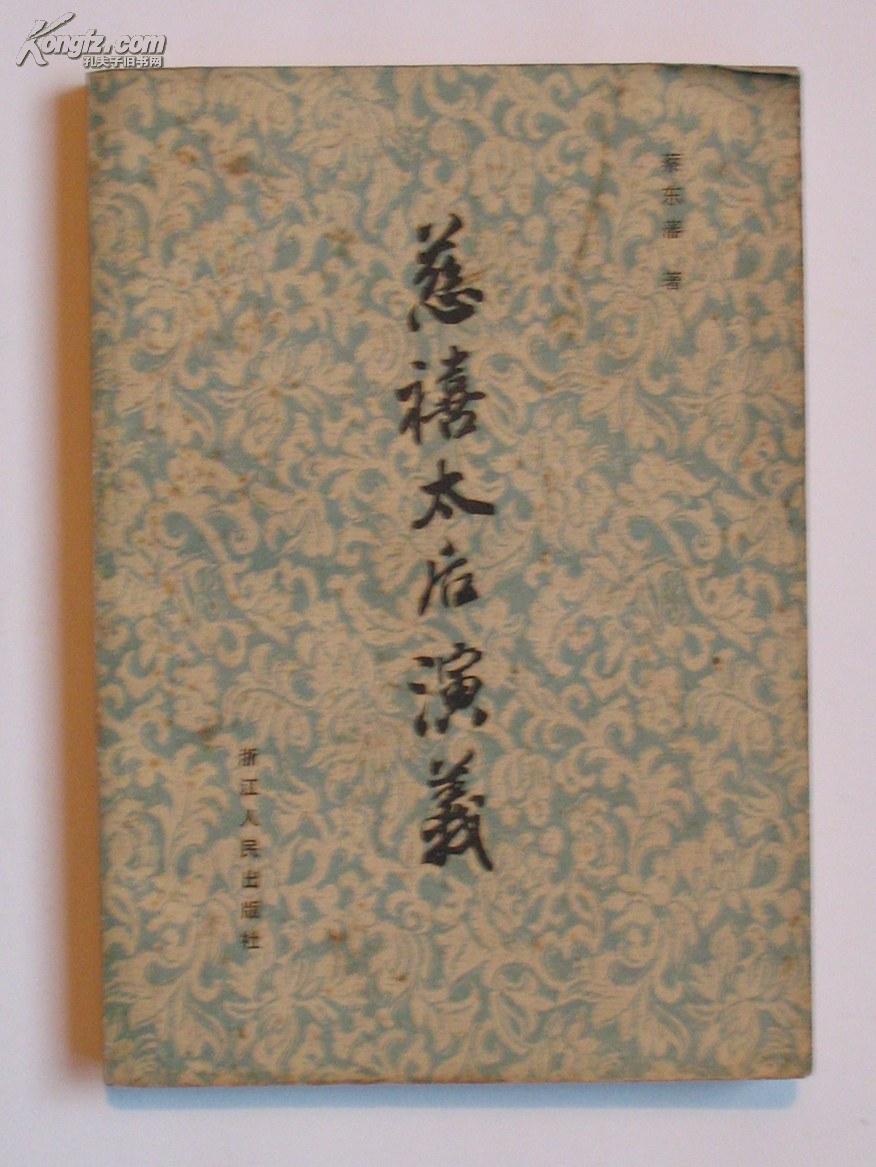 Kongfz.com
孔夫子旧书网
蔡东藩 著
慈禧太后演義
浙江人民出版社